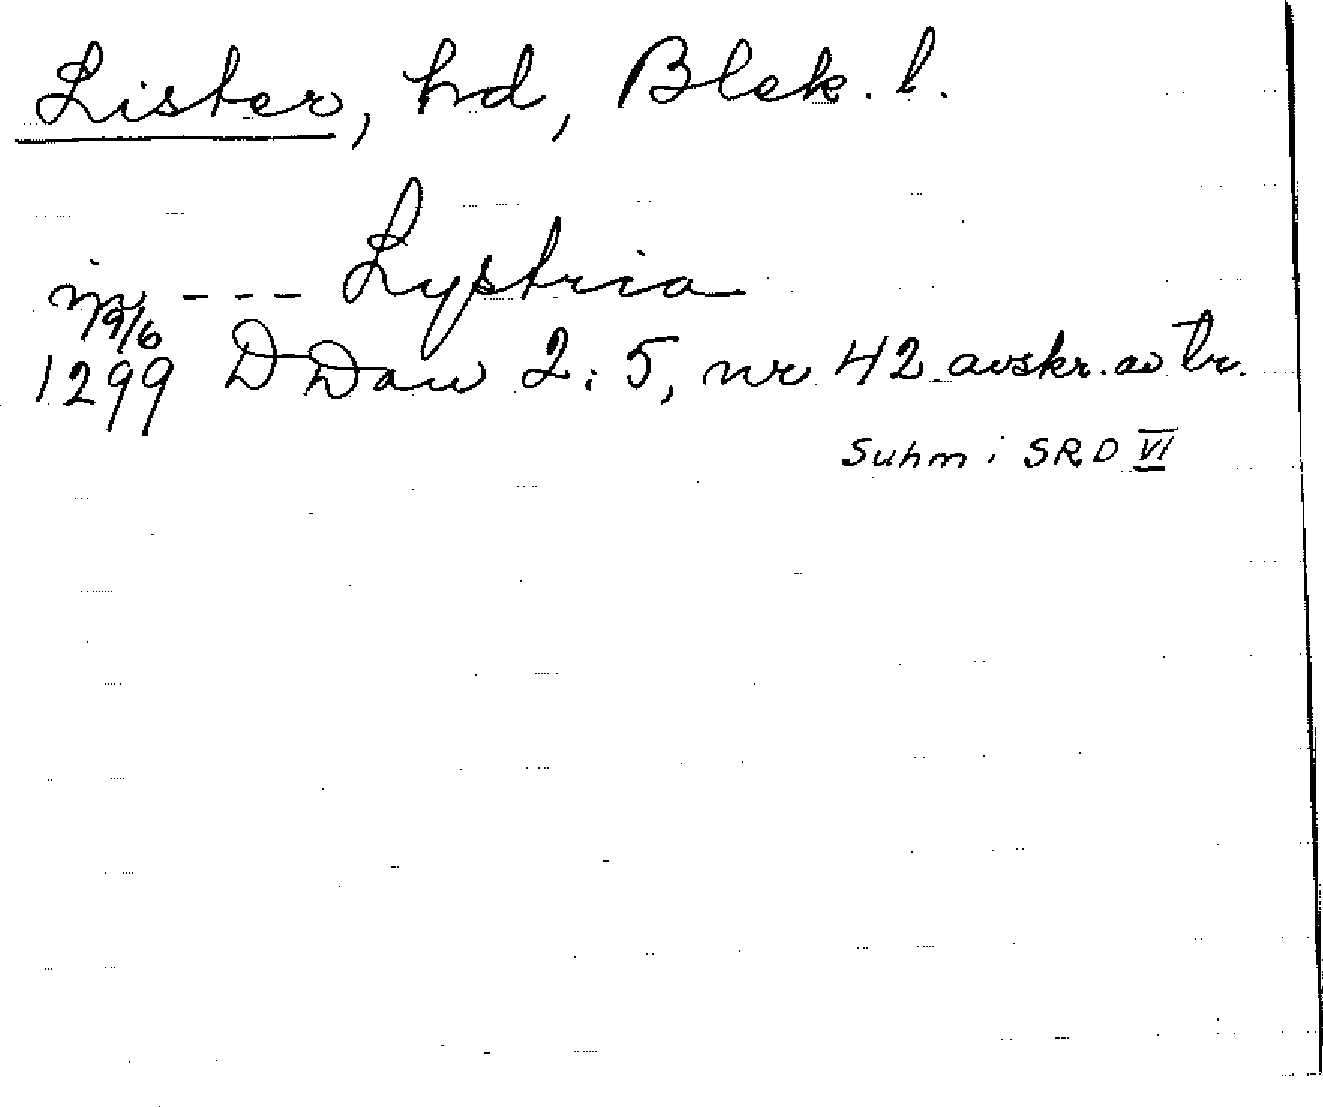 Lister, hd, Blek. l.
in --- Lystria
9/6
1299 D Daw 2:5, nr 42 avskr. av tr.
Suhm i SRD VI